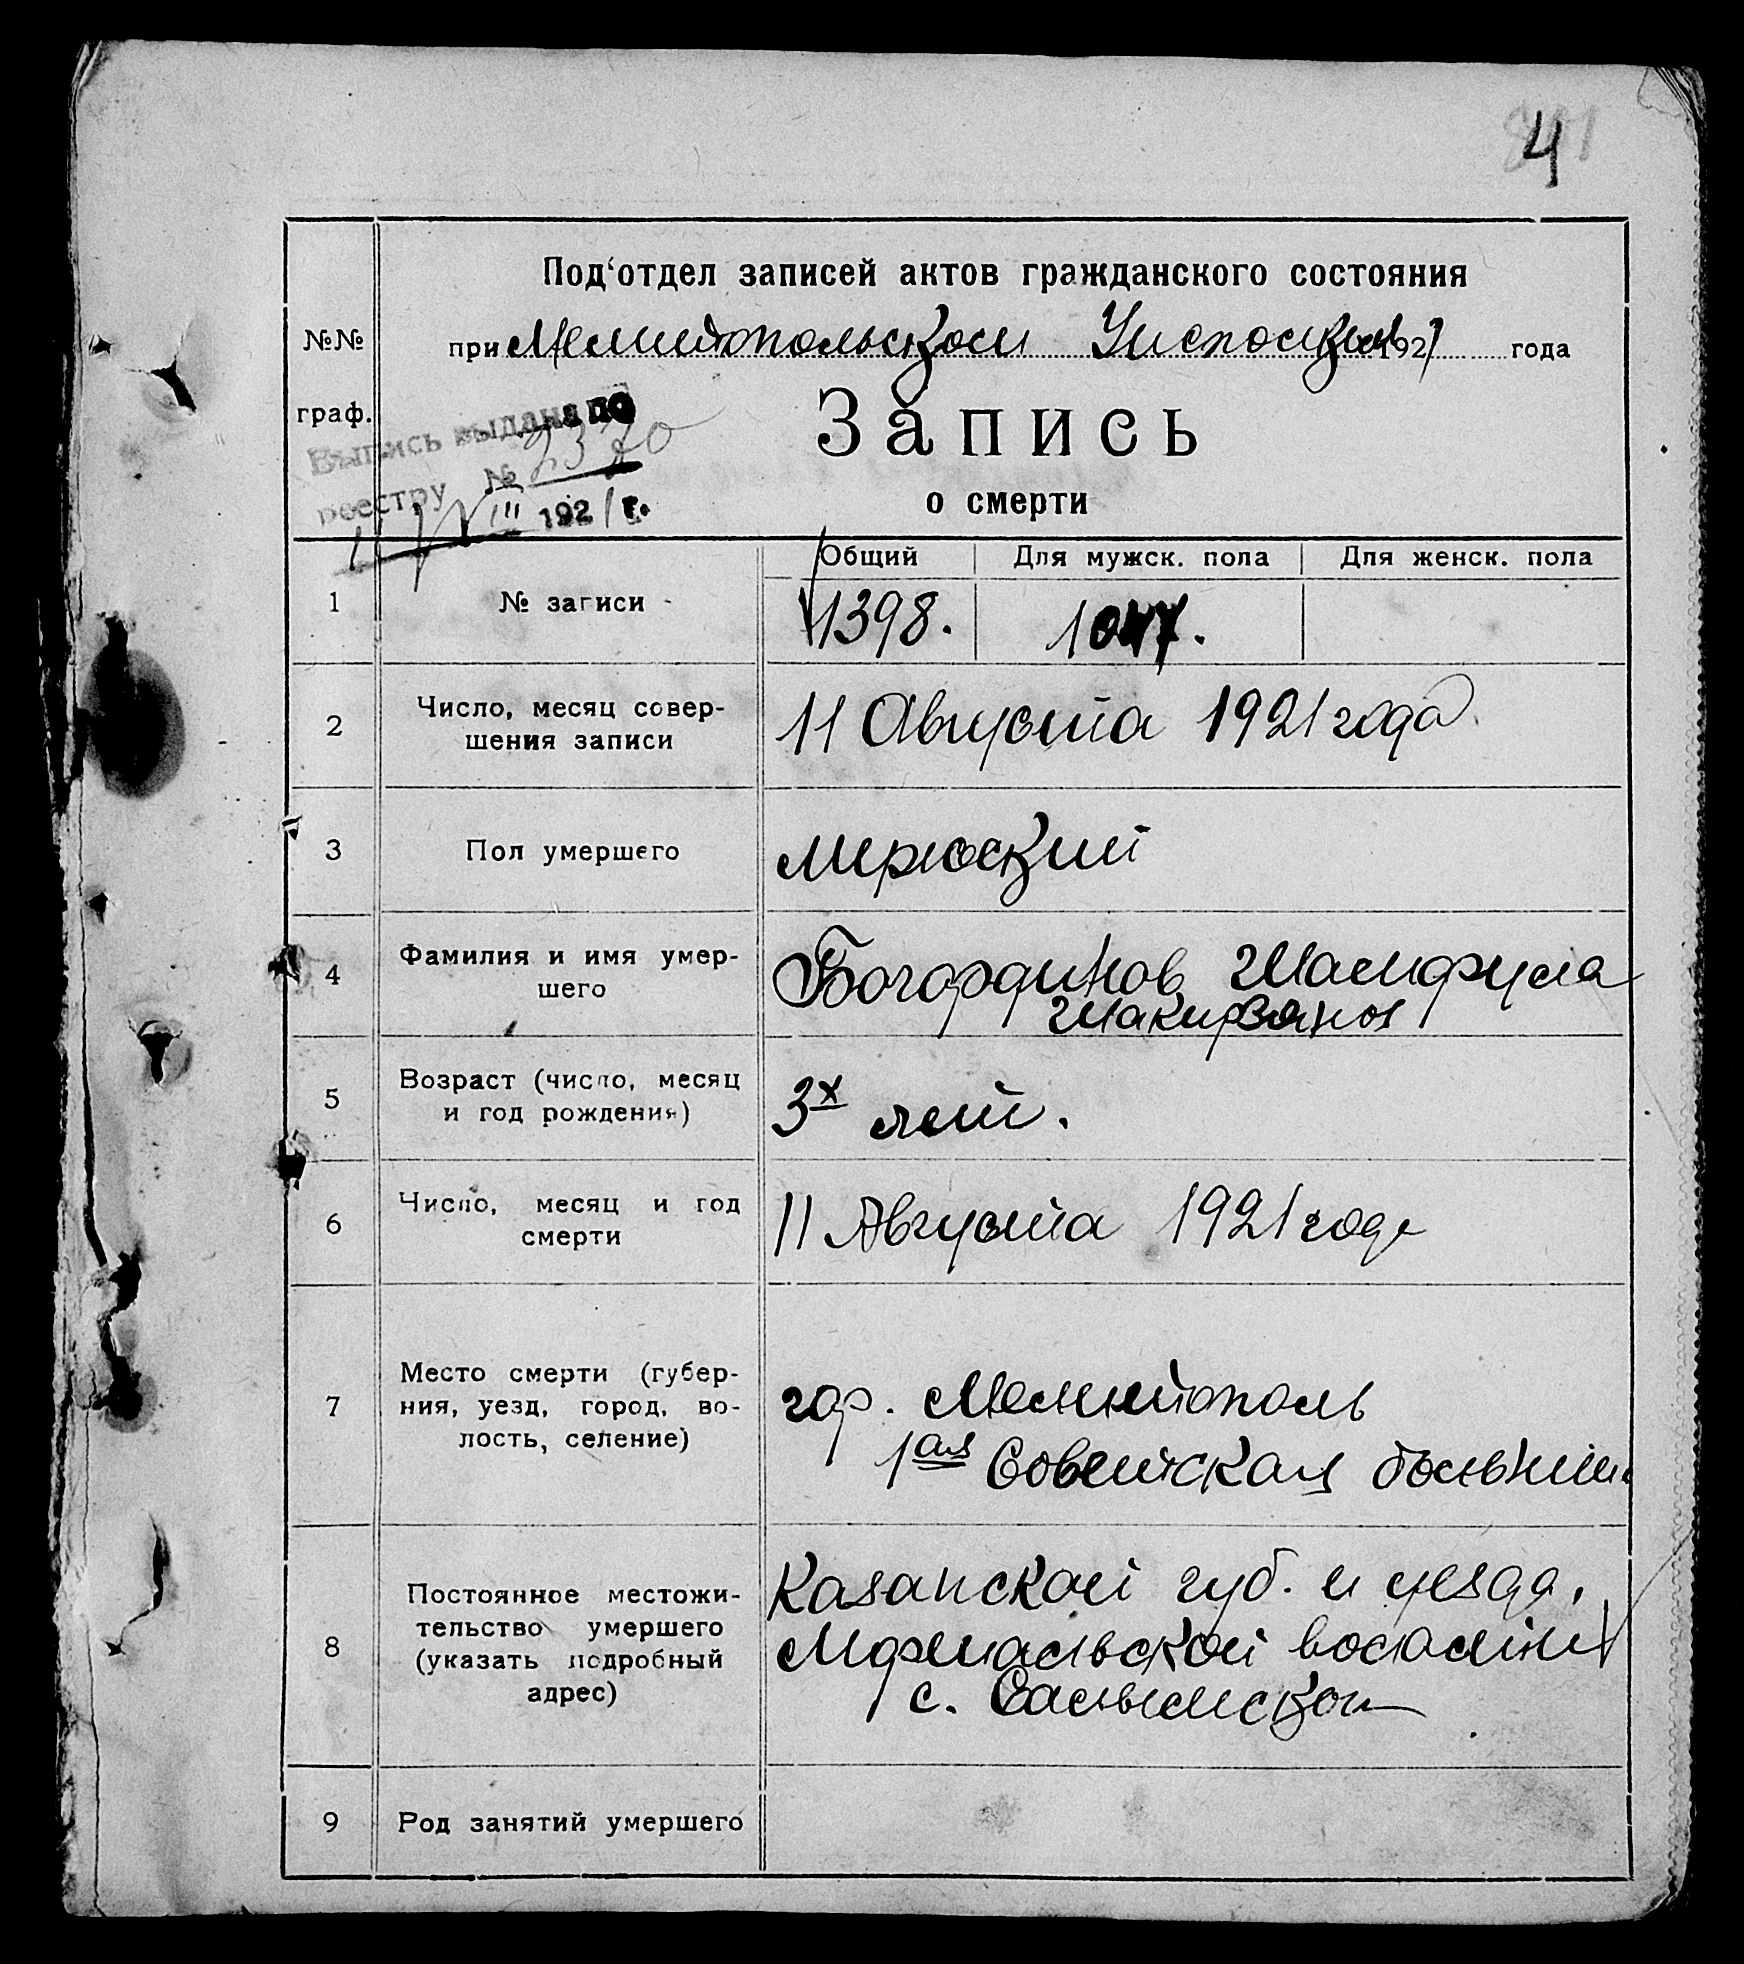 4
Под‘отдел записей актов гражданского состояния
№№
при Мелитопольском Уисполкоме 1921 года
граф.
Запись
Выпись выдана по
реестру № 2370
11/VIII 1921 г.
о смерти
Общий Для мужск. пола Для женск. пола
1 № записи 1398. 1047.
2 Число, месяц совер-
шения записи
11 Августа 1921 года
3 Пол умершего мужской
4 Фамилия и имя умер-
шего
Шакирзянов
5 Возраст (число, месяц
и год рождения)
3х лет.
6 Число, месяц и год
смерти
11 Августа 1921 года
7 Место смерти (губер-
ния, уезд, город, во-
лость, селение)
гор. Мелитополь
1ая Советская больниц
8 Постоянное местожи-
тельство умершего
(указать подробный
адрес)
Казанской губ. и уезда,
волости
с.
9 Род занятий умершего